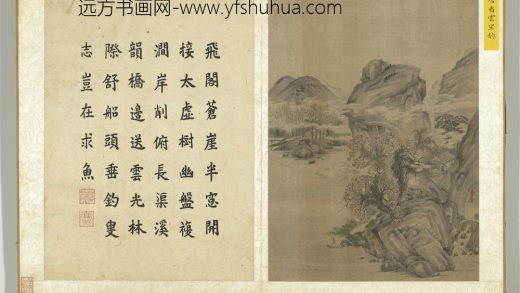 远方书画网-www.yfshuhua.com
飛閣蒼崖半窓開
接太虛樹幽盤複
澗岸削俯長渠溪
韻橋邊送雲光林
際舒船頭垂釣叟
志豈在求魚